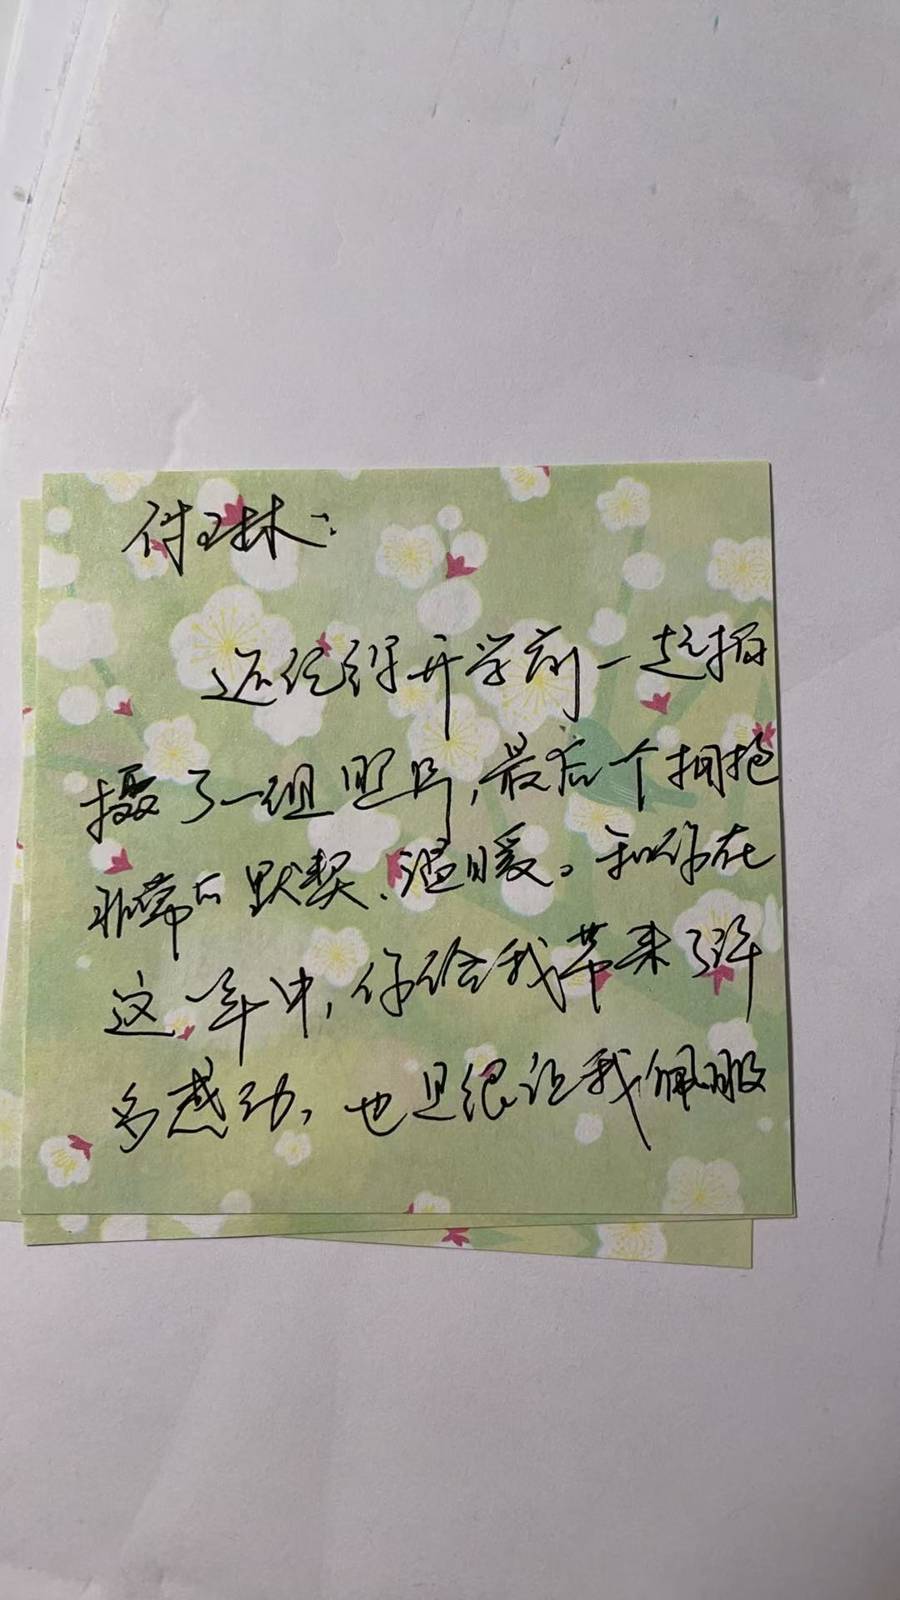 付王林:
还记得开学前一起拍
摄了一组照片,最后个拥抱
非常的默契、温暖。和你在
这一年中,你给我带来了许
多感动,也是很让我佩服